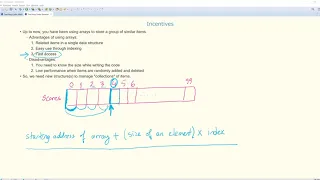 Incentives
• Up to now, you have been using arrays to store a group of similar items.
- Advantages of using arrays:
1. Related items in a single data structure
2. Easy use through indexing
3. Fast access
- Disadvantages:
1. You need to know the size while writing the code
2. Low performance when items are randomly added and deleted
• So, we need new structure(s) to manage "collections" of items.
0 1 2 3 4 5 6 99
Scores
starting address of array + (size of an element) X index